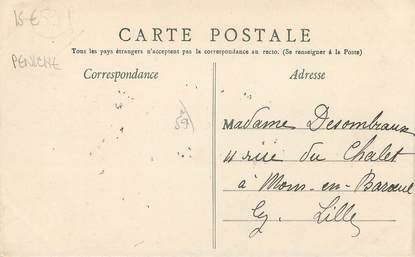 15 €
PENICHE
CARTE POSTALE
Tous les pays étrangers n'acceptent pas la correspondance au recto. (Se renseigner à la Poste)
Correspondance
Adresse
59
Madame Desombraux
4 rue du Chalet
à Mons-en-Barœul
Lille